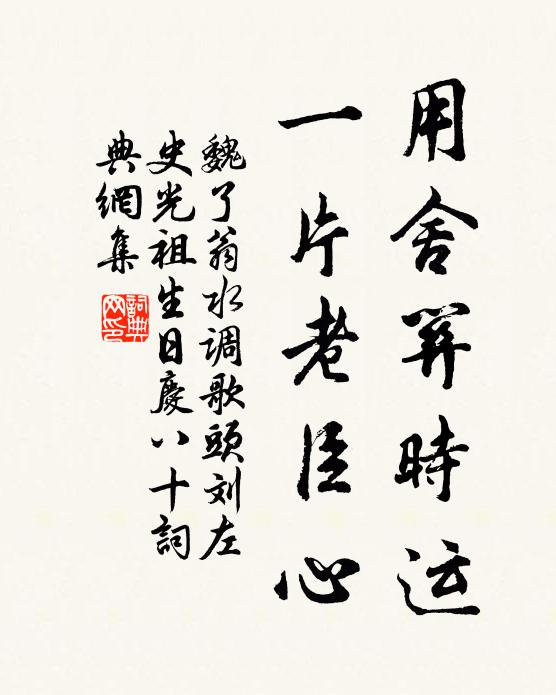 用舍关時运
一片老臣心
魏了翁水调歌頭刘左
史光祖生日慶八十詞
典網集
詞典
网印